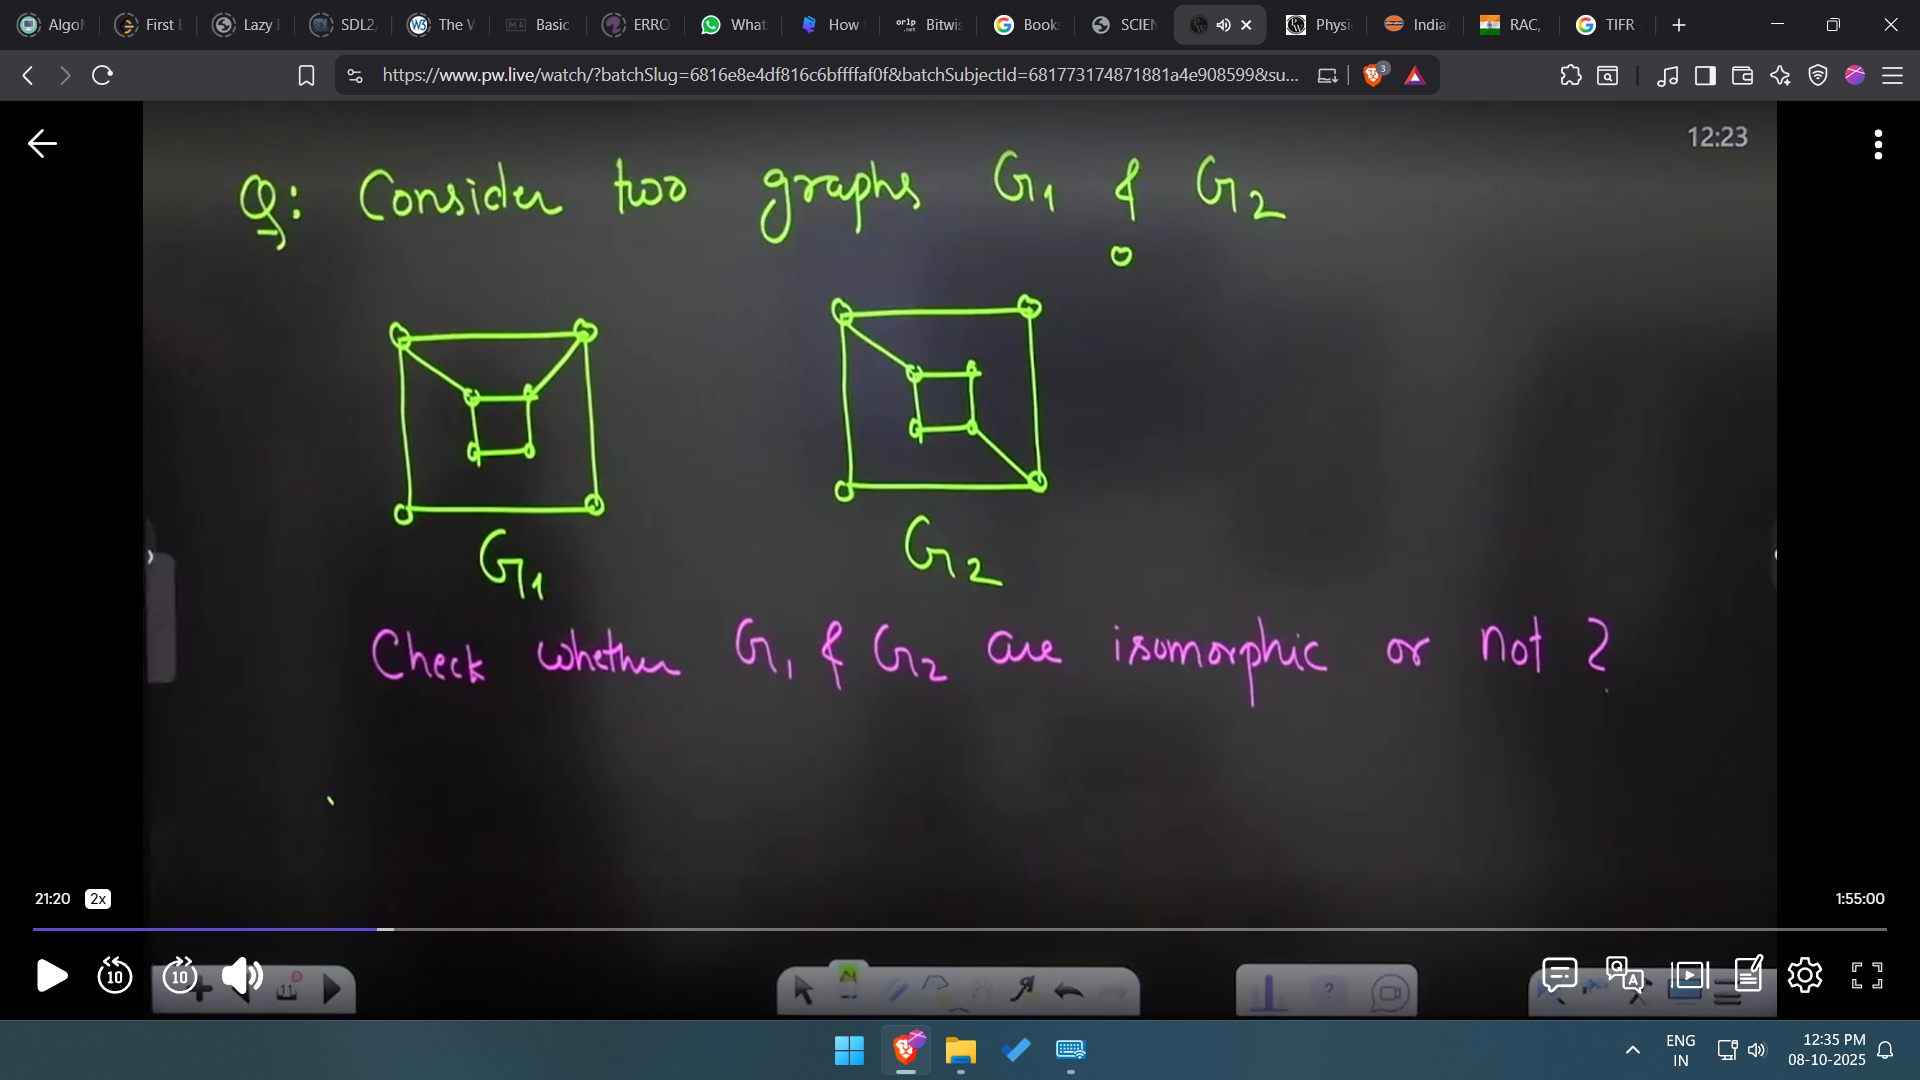 Algo
First
Lazy
SDL2,
The W
Basic
ERRO
What
How
Bitwis
Book
SCIEN
Physi
India
RAC,
TIFR
https://www.pw.live/watch/?batchSlug=6816e8e4df816c6bffffaf0f&batchSubjectId=681773174871881a4e908599&su...
3
12:23
Q: Consider two graphs G1 & G2
G1
G2
Check whether G1 & G2 are isomorphic or not ?
21:20 2x
1:55:00
10
10
ENG
IN
12:35 PM
08-10-2025